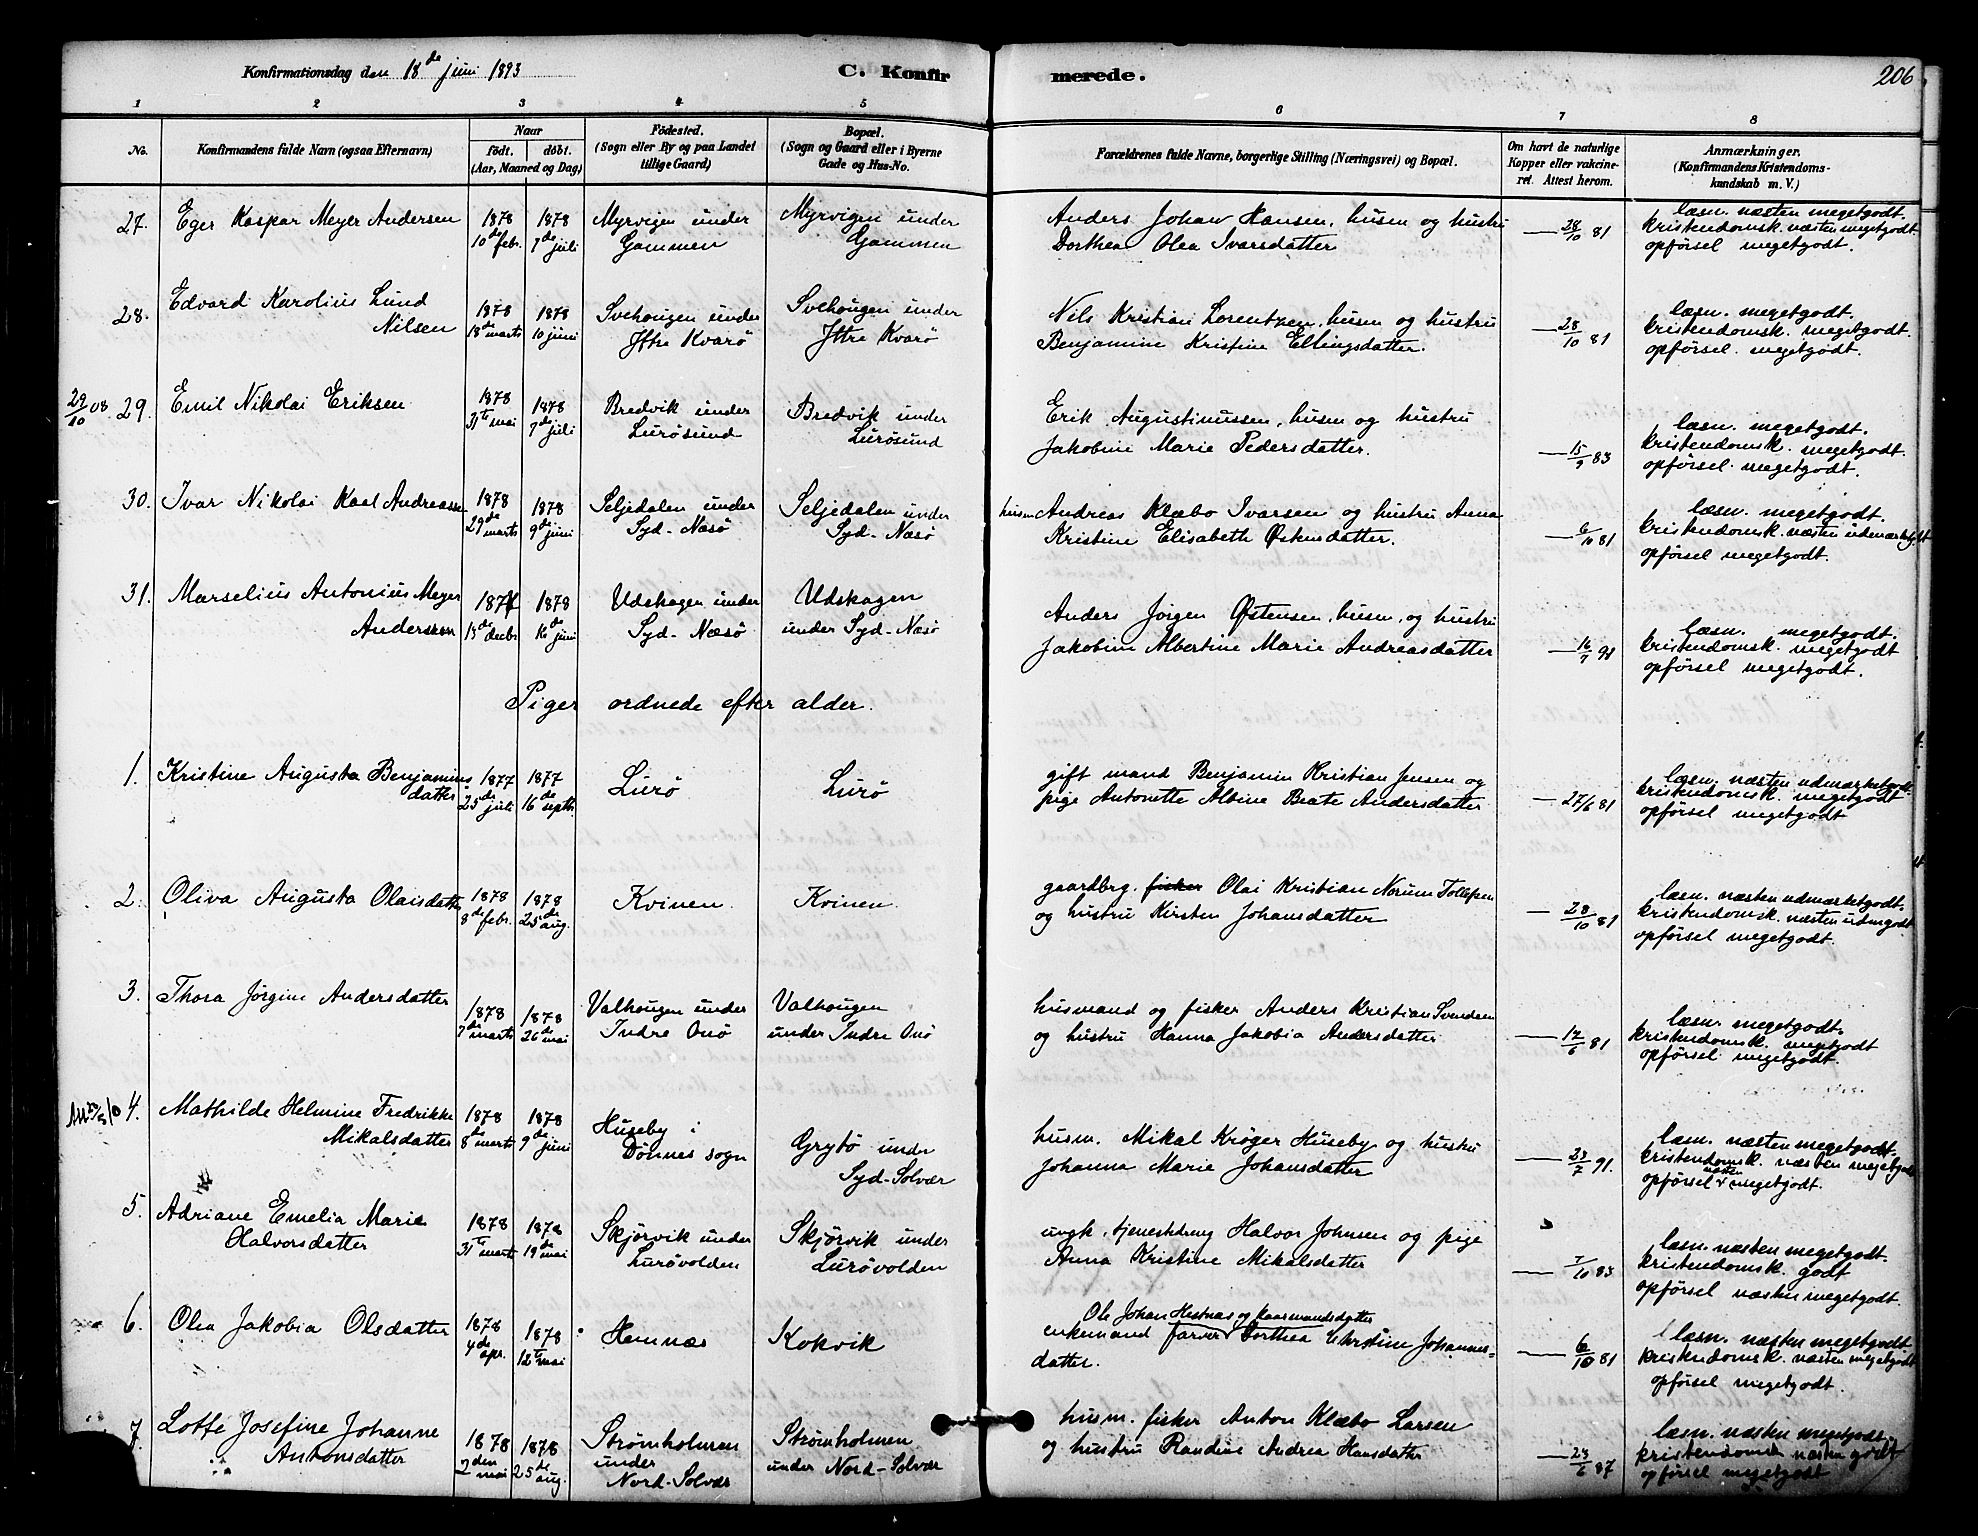 Konfirmationsdag den 18de juni 1893
C. Konfir
merede.
206
1 2 3 4 5 6 7 8
No.
Konfirmandens fulde Navn (ogsaa Efternavn)
Naar
født. døbt.
(Aar, Maaned og Dag)
Fødested.
(Sogn eller By og paa Landet
tillige Gaard)
Bopæl.
(Sogn og Gaard eller i Byerne
Gade og Hus-No.
Forældrenes fulde Navne, borgerlige Stilling (Næringsvei) og Bopæl.
Om havt de naturlige
Kopper eller vakcine-
ret. Attest herom.
Anmærkninger.
(Konfirmandens Kristendoms-
kundskab m. V.)
27. Eger Kaspar Meyer Andersen
1878
10de febr.
1878
7de juli
Myrvigen under
Gammen
Myrvigen under
Gammen
Anders Johan Hansen, husm og hustru
Dorthea Olea Ivarsdatter
28/10 81
læsn. næsten megetgodt.
kristendomsk. næsten megetgodt.
opførsel megetgodt.
28. Edvard Karolius Lund
Nilsen
1878
18de marts
1878
10 juni
Svehougen under
Yttre Kvarø
Svehougen under
Yttre Kvarø
Nils Kristian Lorentzen, husm og hustru
Benjamine Kristine Ellingsdatter.
28/10 81
læsn. megetgodt.
kristendomsk. megetgodt.
opførsel. megetgodt.
29/10 08. 29. Emil Nikolai Eriksen
1878
31te mai
1878
7de juli
Bredvik under
Lurøsund
Bredvik under
Lurøsund
Erik Augustinussen, husm og hustru
Jakobine Marie Pedersdatter.
15/9 83
læsn. megetgodt.
kristendomsk. megetgodt.
opførsel. megetgodt.
30. Ivar Nikolai Kaal Andreassen
1878
29de marts
1878
9de juni
Seljedalen under
Syd-Næsø
Seljedalen under
Syd-Næsø
husm Andreas Klæbo Ivarsen og hustru Anna
Kristine Elisabeth Østensdatter.
6/10 81
læsn. megetgodt.
kristendomsk. næsten udmærketgodt
opførsel megetgodt.
31. Marselius Antonius Meyer
Andersen
1877
15de decbr.
1878
10de juni
Udskagen under
Syd-Næsø
Udskagen
under Syd-Næsø
Anders Jørgen Østensen, husm, og hustru
Jakobine Albertine Marie Andreasdatter
16/7 91
læsn. megetgodt.
kristendomsk. megetgodt
opførsel megetgodt.
Piger ordnede efter alder.
1. Kristine Augusta Benjamins
datter
1877
25de juli
1877
16de septbr.
Lurø
Lurø
gift mand Benjamin Kristian Jensen og
pige Antonette Albine Beate Andersdatter
27/6 81
læsn. næsten udmærketgodt.
kristendomsk. megetgodt
opførsel megetgodt
2. Oliva Augusta Olaisdatter
1878
8de febr.
1878
25de aug.
Kvinen.
Kvinen.
gaardbrg. fisker Olai Kristian Norum Tollefsen
og hustru Kirsten Johansdatter
28/10 81
læsn. næsten udmærketgodt.
kristendomsk. næsten udm.godt
opførsel megetgodt.
3. Thora Jørgine Andersdatter
1878
7de marts
1878
26de mai
Valhougen under
Indre Onø
Valhougen
under Indre Onø
husmand og fisker Anders Kristian Svendsen
og hustru Hanna Jakobia Andersdatter
17/6 81
læsn. megetgodt.
kristendomsk. megetgodt
opførsel megetgodt.
4. Mathilde Helmine Fredrikke
Mikalsdatter
1878
8de marts
1878
9de juni
Huseby i
Dønnes sogn
Grytø under
Syd-Solvær
husm. Mikal Krøger Huseby og hustru
Johanna Marie Johansdatter.
23/7 91.
læsn. næsten megetgodt.
kristendomsk. næsten megetgodt
næsten
opførsel megetgodt.
5. Adriane Emelia Marie
Halvorsdatter
1878
31te marts
1878
19de mai
Skjørvik under
Lurøvolden
Skjørvik under
Lurøvolden
ungk. tjenestdreng Halvor Johnsen og pige
Anna Kristine Mikalsdatter
7/10 83
læsn. næsten megetgodt.
kristendomsk. godt
opførsel næsten megetgodt.
6. Olea Jakobia Olsdatter
1878
4de apr.
1878
12te mai
Hamnæs
Kokvik
Ole Johan Hestnæs og
enkemand farver Dorthea Christine Johannes-
datter.
6/10 81
læsn. næsten megetgodt
kristendomsk. næsten megetgodt
opførsel megetgodt.
7. Lotte Josefine Johanne
Antonsdatter
1878
2den mai
1878
25de aug.
Strømholmen
under
Nord-Solvær
Strømholmen
under Nord-Solvær
husm. fisker Anton Klæbo Larsen
og hustru Randine Andrea Hansdatter
23/6 87
læsn. næsten megetgodt.
kristendomsk næsten godt
opførsel megetgodt